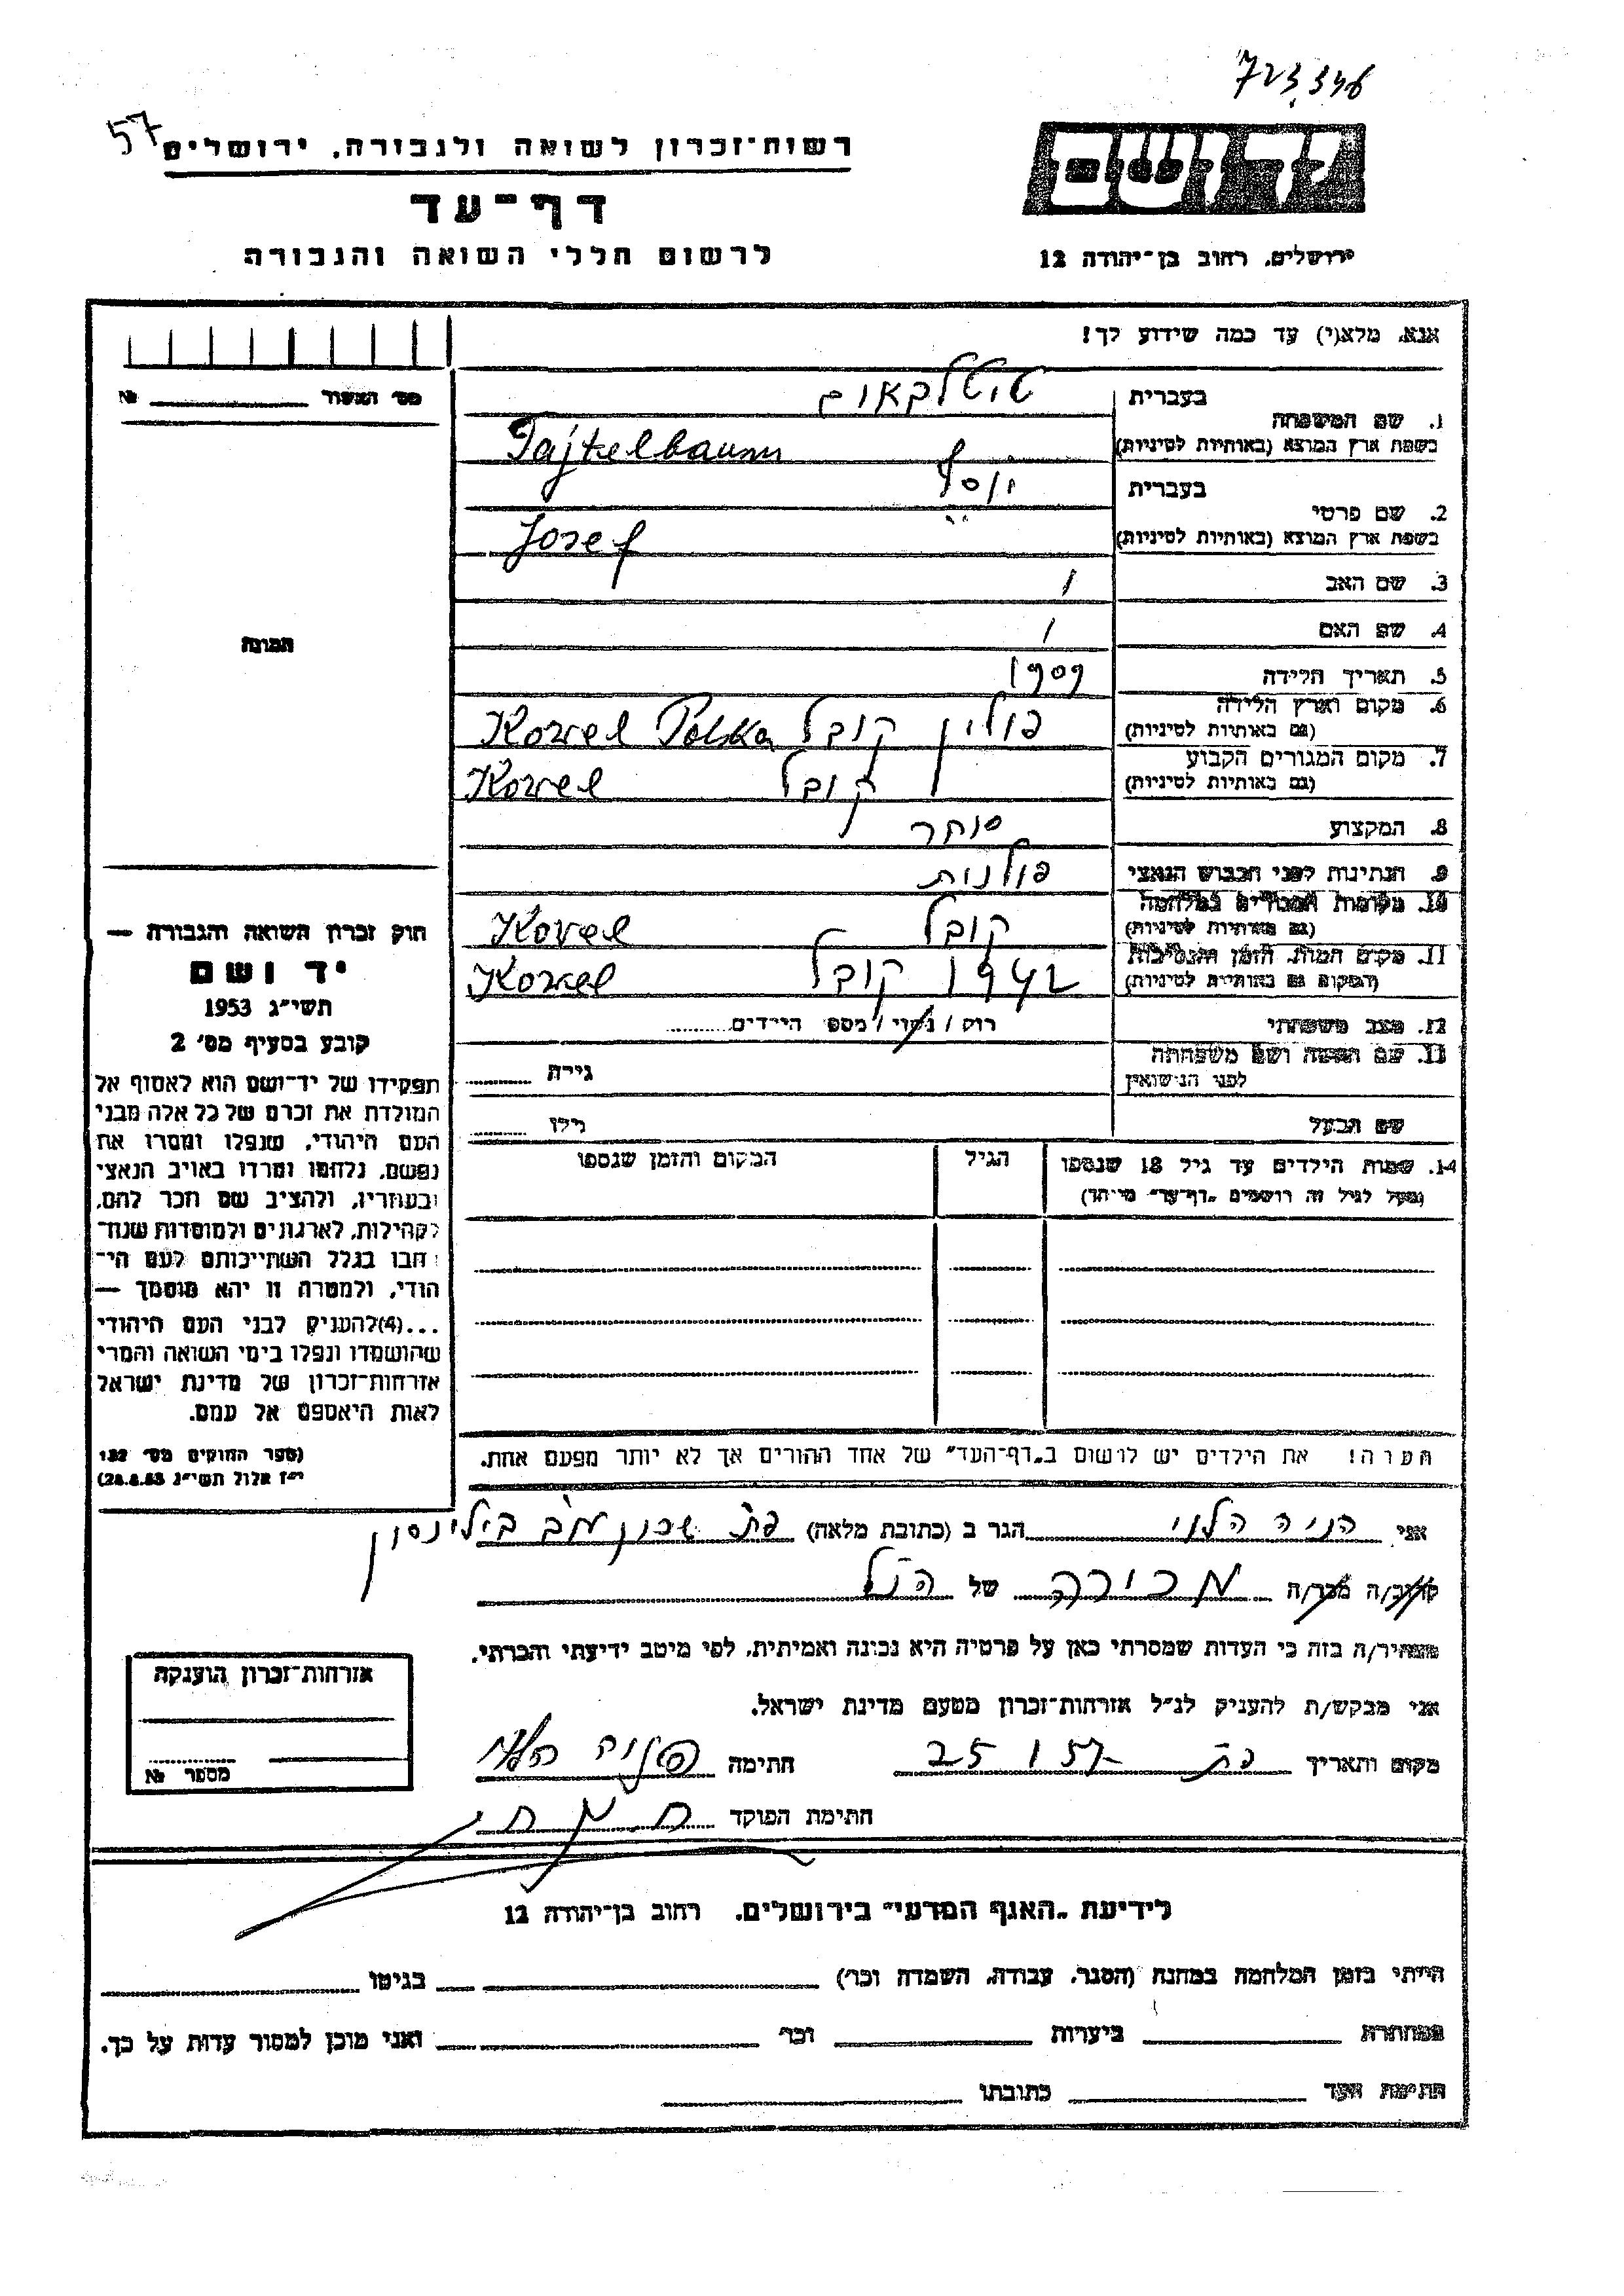 723.346
57
רשות־זכרון לשואה ולגבורה, ירושלים
דף־עד
לרשום חללי השואה והגבורה
יד ושם
ירושלים, רחוב בן־יהודה 12
אנא, מלא(י) עד כמה שידוע לך!
מס' האשור №
1. שם המשפחה בעברית טיטלבאום
בשפת ארץ המוצא (באותיות לטיניות) Tajtelbaum
2. שם פרטי בעברית יוסף
בשפת ארץ המוצא (באותיות לטיניות) Josef
3. שם האב /
4. שם האם /
5. תאריך הלידה 1909
6. מקום וארץ הלידה (גם באותיות לטיניות) פולין קובל Kowel Polska
7. מקום המגורים הקבוע (גם באותיות לטיניות) קובל Kowel
8. המקצוע סוחר
9. הנתינות לפני הכבוש הנאצי פולנית
10. מקומות המגורים במלחמה (גם באותיות לטיניות) קובל Kovel
11. מקום המות, הזמן והנסיבות (המקום גם באותיות לטיניות) 1942 קובל Kowel
12. מצב משפחתי רוק / נשוי / מספר הילדים
13. שם האשה ושם משפחתה לפני הנישואין גילה
שם הבעל גילו
14. שמות הילדים עד גיל 18 שנספו הגיל המקום והזמן שנספו
(מעל לגיל זה רושמים "דף־עד" מיוחד)
הערה! את הילדים יש לרשום ב"דף־העד" של אחד ההורים אך לא יותר מפעם אחת.
תמונה
חוק זכרון השואה והגבורה —
יד ושם
תשי"ג 1953
קובע בסעיף מס' 2
תפקידו של יד־ושם הוא לאסוף אל
המולדת את זכרם של כל אלה מבני
העם היהודי, שנפלו ומסרו את
נפשם, נלחמו ומרדו באויב הנאצי
ובעוזריו, ולהציב שם וזכר להם,
לקהילות, לארגונים ולמוסדות שנח־
רבו בגלל השתייכותם לעם הי־
הודי, ולמטרה זו יהא מוסמך —
...(4)להעניק לבני העם היהודי
שהושמדו ונפלו בימי השואה והמרי
אזרחות־זכרון של מדינת ישראל
לאות היאספם אל עמם.
(ספר החוקים מס' 132
י"ז אלול תשי"ג 28.8.53)
אני הניה הלוי הגר ב (כתובת מלאה) פת שכון בילינסון
קרוב/ה מכר/ה מכירה של הנ"ל
מצהיר/ה בזה כי העדות שמסרתי כאן על פרטיה היא נכונה ואמיתית, לפי מיטב ידיעתי והכרתי.
אני מבקש/ת להעניק לנ"ל אזרחות־זכרון מטעם מדינת ישראל.
מקום ותאריך פת 25 1 57 חתימה הניה הלוי
חתימת הפוקד
אזרחות־זכרון הוענקה
מספר №
לידיעת "האגף המדעי" בירושלים, רחוב בן־יהודה 12
הייתי בזמן המלחמה במחנה (הסגר, עבודה, השמדה וכו') בגיטו
במחתרת ביערות וכו' ואני מוכן למסור עדות על כך.
חתימת העד כתובתו